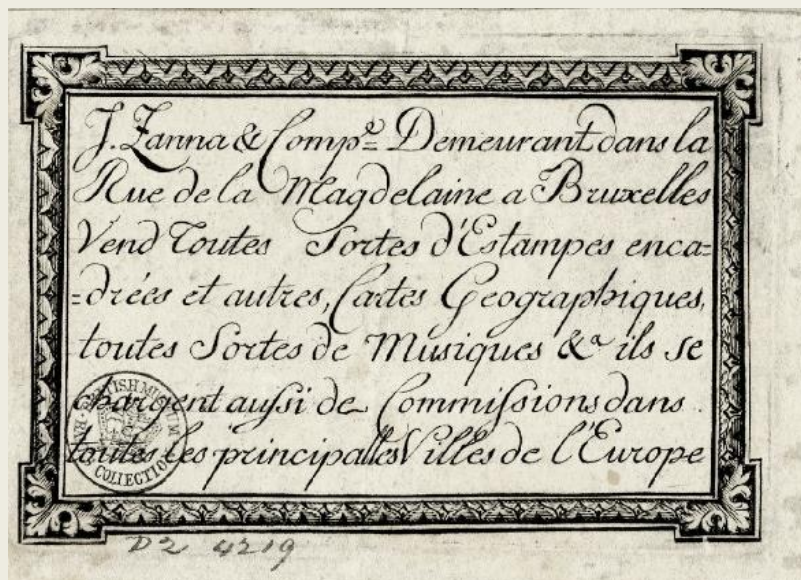 J. Zanna & Comp.e Demeurant dans la
Rue de la Magdelaine a Bruxelles
Vend Toutes Sortes d'Estampes enca=
=drées et autres, Cartes Geographiques,
toutes Sortes de Musiques &a ils se
chargent aussi de Commissions dans
toutes les principalles Villes de l'Europe
BRITISH MUSEUM
COLLECTION
D2 4219